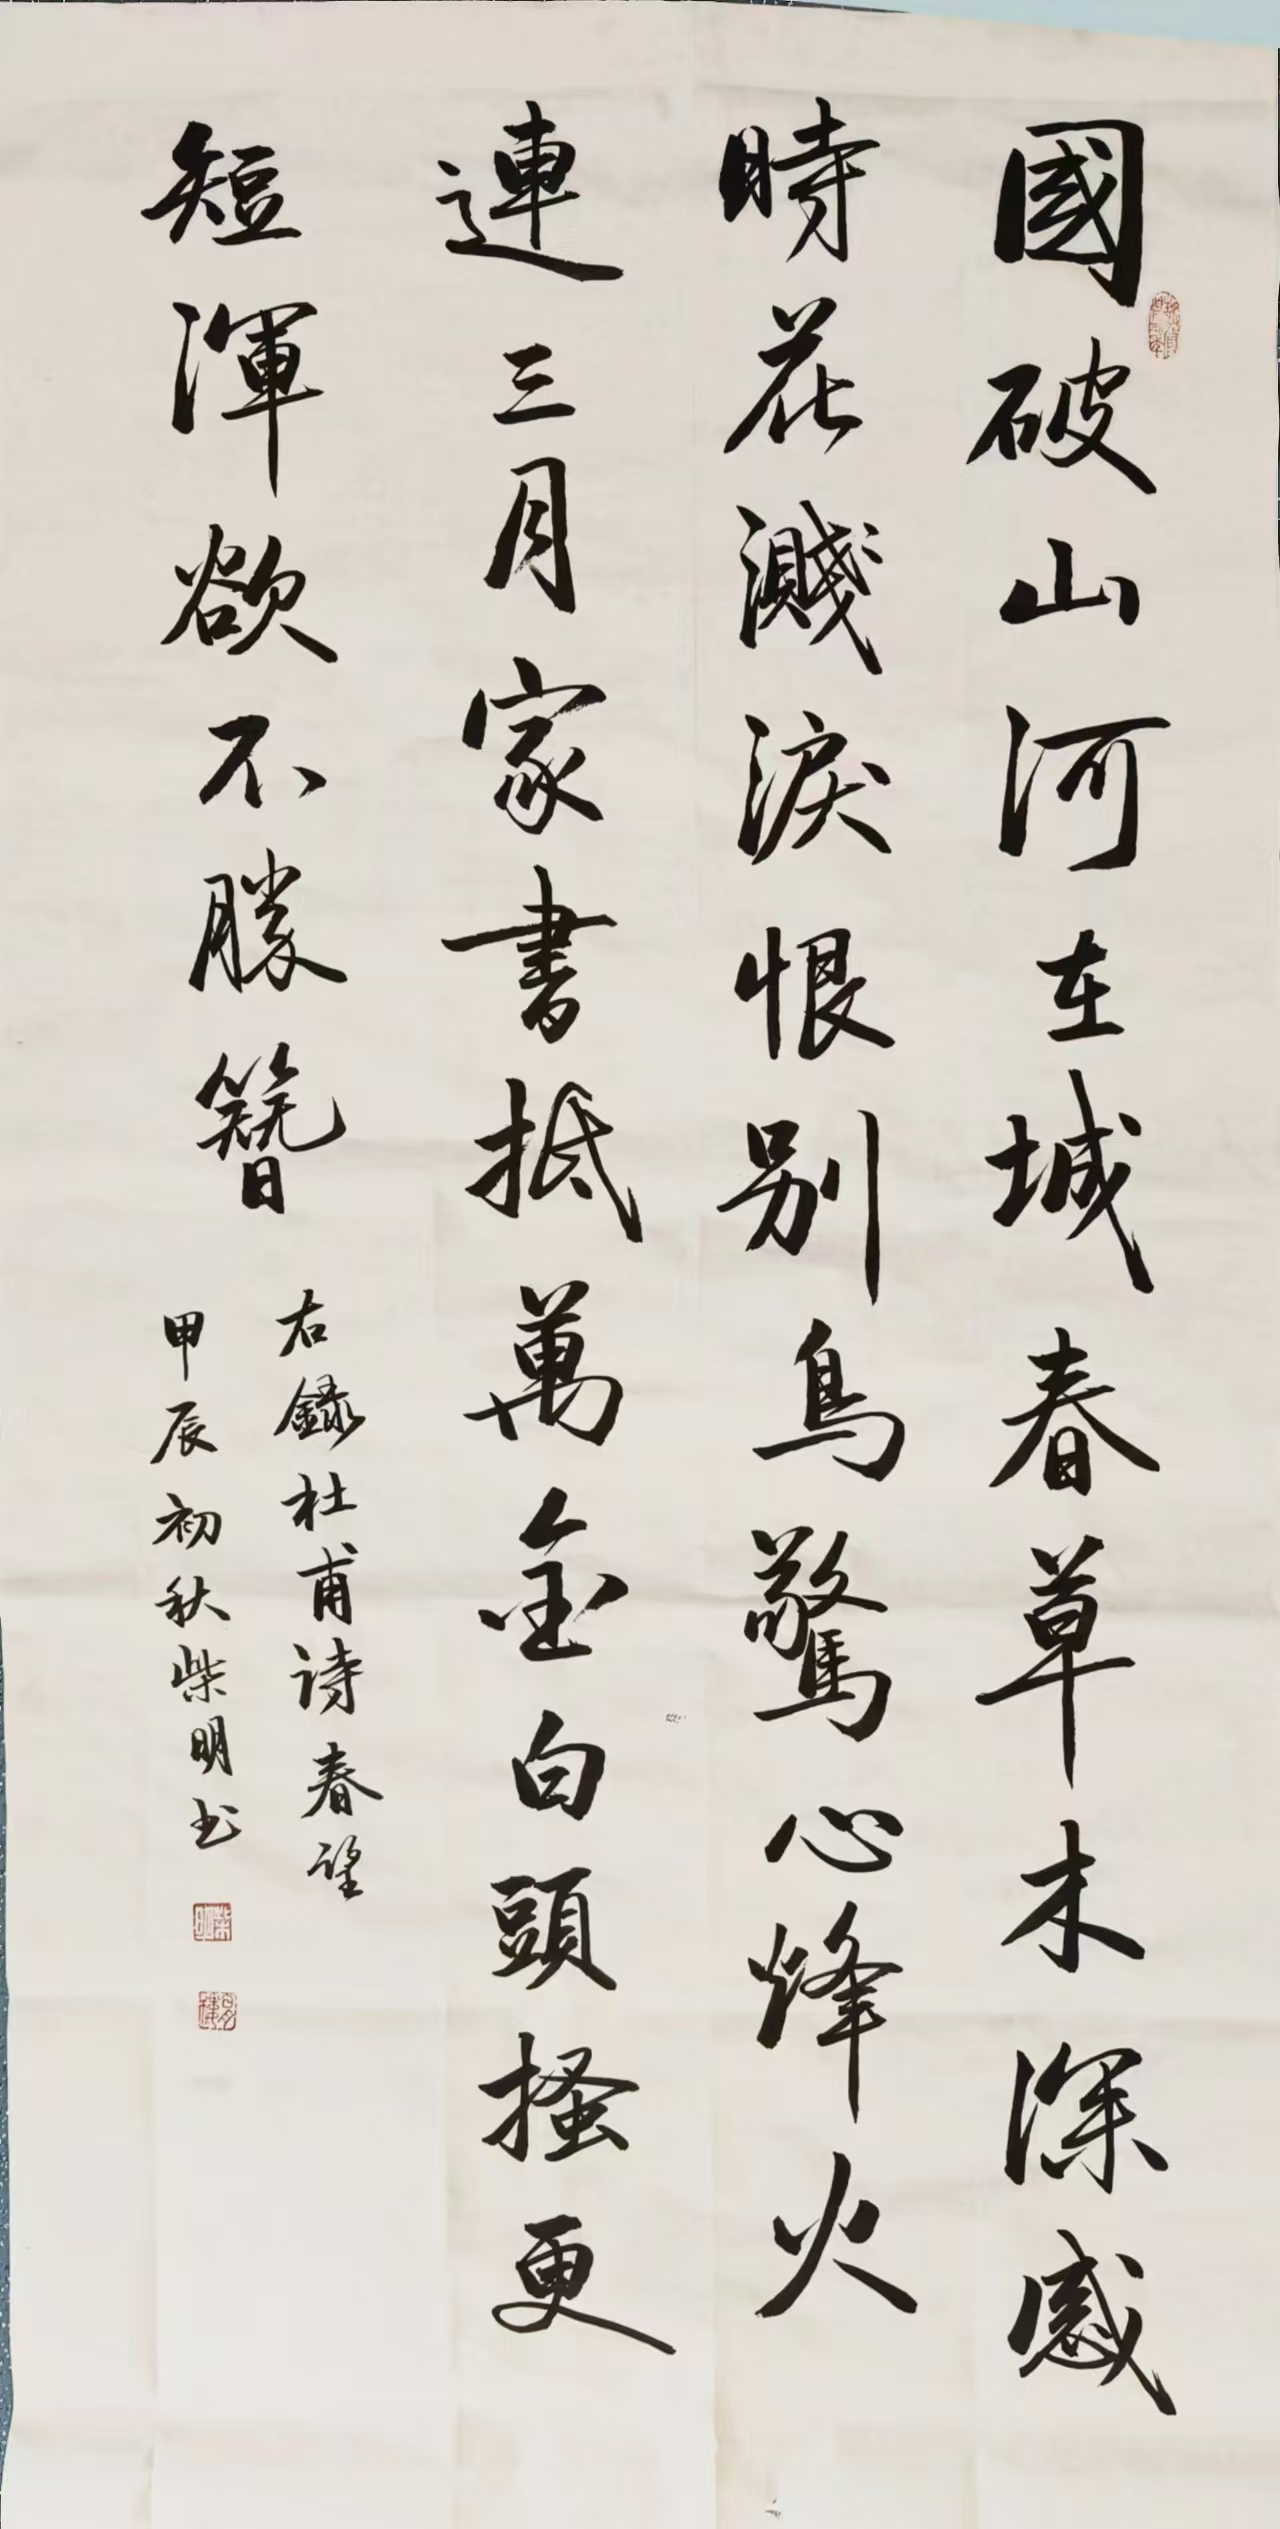 國破山河在城春草木深感
時花濺淚恨别鳥驚心烽火
連三月家書抵萬金白頭搔更
短渾欲不勝簪
右録杜甫诗春望
甲辰初秋柴明书
柴明